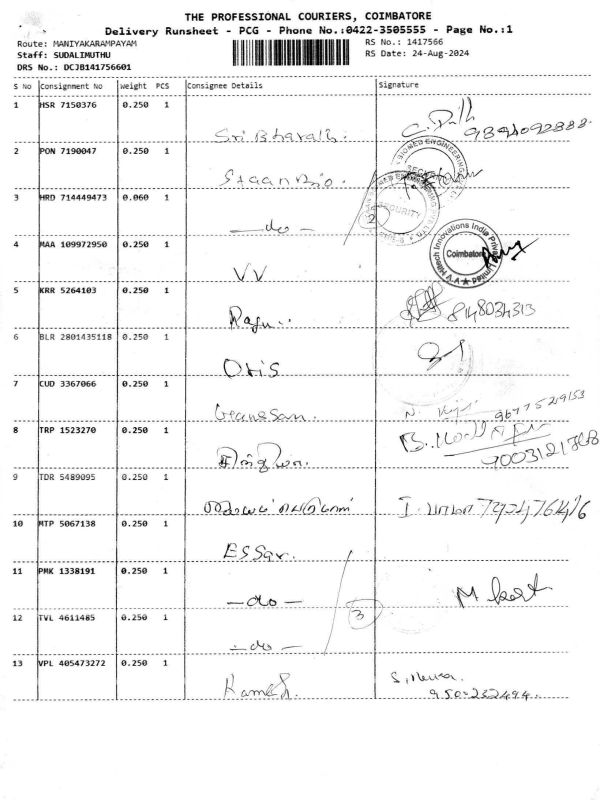 THE PROFESSIONAL COURIERS, COIMBATORE
Delivery Runsheet - PCG - Phone No.:0422-3505555 - Page No.:1
Route: MANIYAKARAMPAYAM RS No.: 1417566
Staff: SUDALIMUTHU RS Date: 24-Aug-2024
DRS No.: DCJB141756601
S No Consignment No Weight PCS Consignee Details Signature
1 HSR 7150376 0.250 1
Sri Bharath. 9894092888.
2 PON 7190047 0.250 1
Staan Bio.
3 HRD 714449473 0.060 1
SECURITY
2
— do —
4 MAA 109972950 0.250 1
Coimbatore
VV
5 KRR 5264103 0.250 1
Ragu.. 8148034313
6 BLR 2801435118 0.250 1
Otis
7 CUD 3367066 0.250 1
Ganesan. 9677529153
8 TRP 1523270 0.250 1
9 TDR 5489095 0.250 1
10 MTP 5067138 0.250 1
Essar.
11 PMK 1338191 0.250 1
— do —
12 TVL 4611485 0.250 1
3
— do —
13 VPL 405473272 0.250 1
Ramesh.